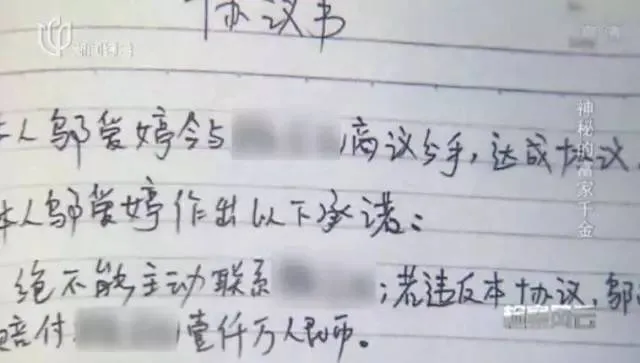 新闻综合
协议书
本人邬爱婷今与 商议分手，达成协议
本人邬爱婷作出以下承诺：
绝不能主动联系 ；若违反本协议，邬
赔付 壹仟万人民币。
神秘的富家千金